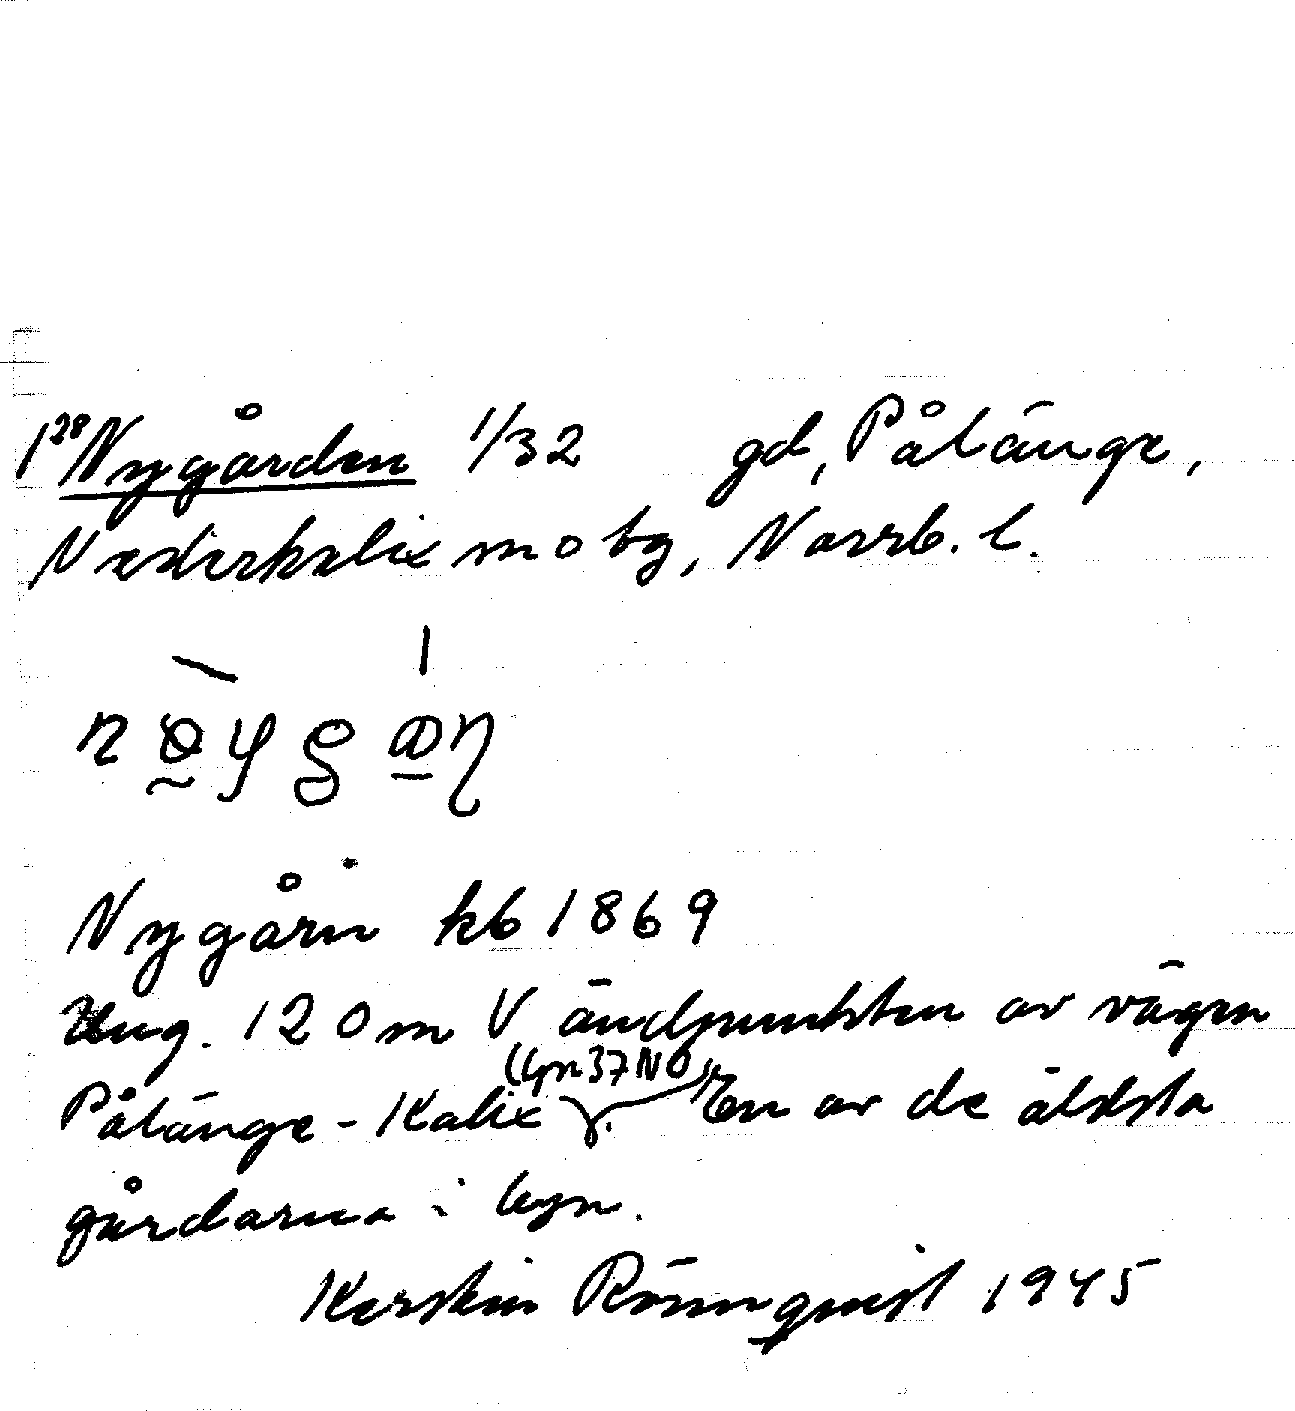 1²⁸ Nygården 1/32 gd, Pålänge,
Nederkalix sn o tg, Norrb. l.
Nygårn kb 1869
Ung. 120 m V ändpunkten av vägen
Pålänge - Kalix (byn 37 NO). En av de äldsta
gårdarna i byn.
Kerstin Rönnquist 1945